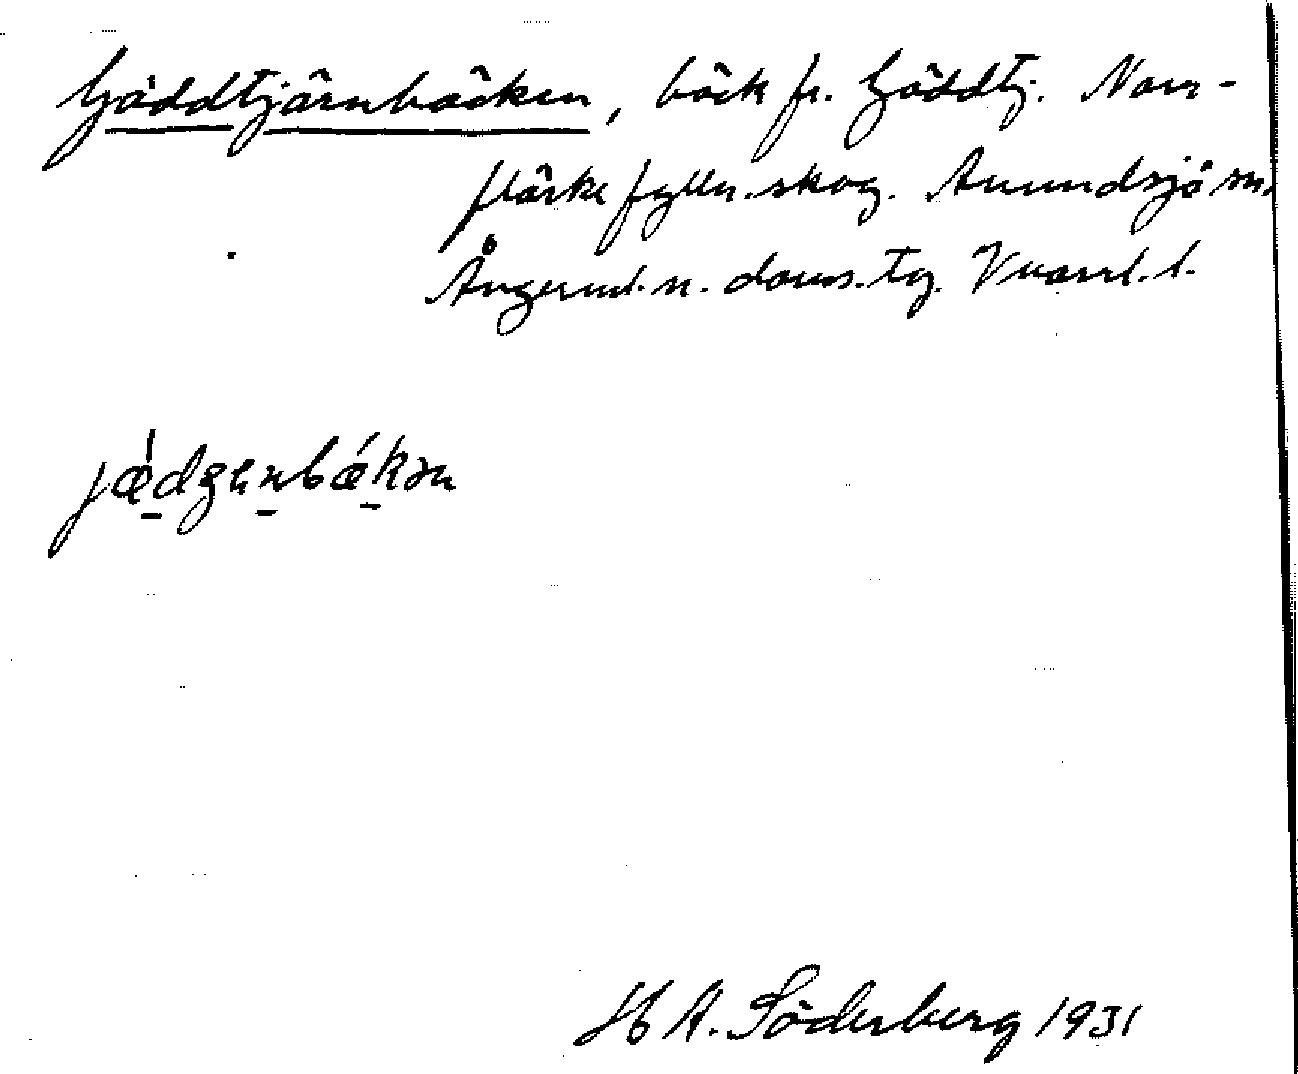 Gäddtjärnbäcken, bäck fr. Gäddtj. Norr-
flärke fylln. skog. Anundsjö sn.
Ångerml. n. doms. tg. Vnorrl. l.
jæ̀dzenbækən
H A. Söderberg 1931